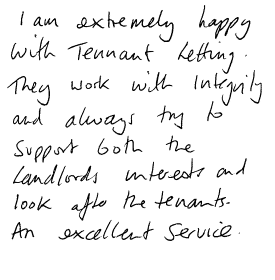 I am extremely happy
with Tennant Letting.
They work with Integrity
and always try to
Support both the
Landlords interests and
look after the tenants.
An excellent Service.